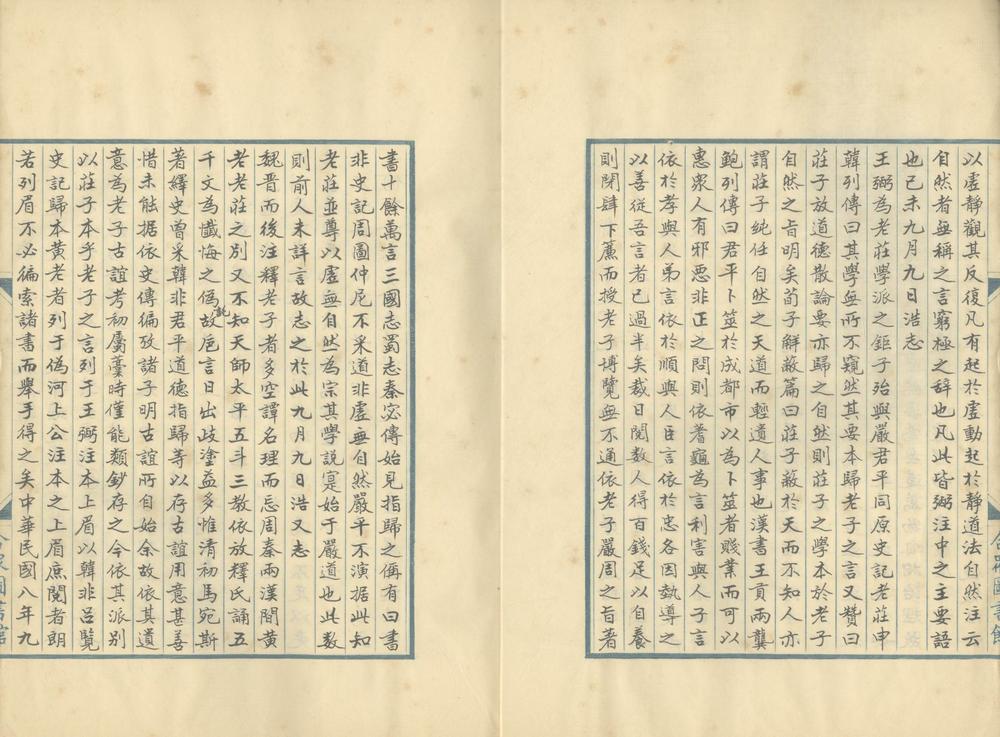 以虛靜觀其反復凡有起於虛動起於靜道法自然注云
自然者無稱之言窮極之辭也凡此皆弼注中之主要語
也己未九月九日浩志
王弼為老莊學派之鉅子殆與嚴君平同原史記老莊申
韓列傳曰其學無所不窺然其要本歸老子之言又贊曰
莊子放道德散論要亦歸之自然則莊子之學本於老子
自然之旨明矣荀子解蔽篇曰莊子蔽於天而不知人亦
謂莊子純任自然之天道而輕道人事也漢書王貢兩龔
鮑列傳曰君平卜筮於成都市以為卜筮者賤業而可以
惠衆人有邪惡非正之問則依蓍龜為言利害與人子言
依於孝與人弟言依於順與人臣言依於忠各因埶導之
以善從吾言者已過半矣裁日閱數人得百錢足以自養
則閉肆下簾而授老子博覽無不通依老子嚴周之旨著
書十餘萬言三國志蜀志秦宓傳始見指歸之偁有曰書
非史記周圖仲尼不采道非虛無自然嚴平不演据此知
老莊並尊以虛無自然為宗其學説寔始于嚴道也此數
則前人未詳言故志之於此九月九日浩又志
魏晋而後注釋老子者多空譚名理而忘周秦兩漢間黄
老老莊之別又不知天師太平五斗三教依放釋氏誦五
千文為懺悔之偽託故巵言日出歧塗益多惟清初馬宛斯
著繹史曾采韓非君平道德指歸等以存古誼用意甚善
惜未能据依史傳徧攷諸子明古誼所自始余故依其遺
意為老子古誼考初屬藁時僅能類鈔存之今依其派別
以莊子本乎老子之言列于王弼注本上眉以韓非吕覽
史記歸本黄老者列于偽河上公注本之上眉庶閱者朗
若列眉不必徧索諸書而舉手得之矣中華民國八年九
合眾圖書館
合眾圖書館